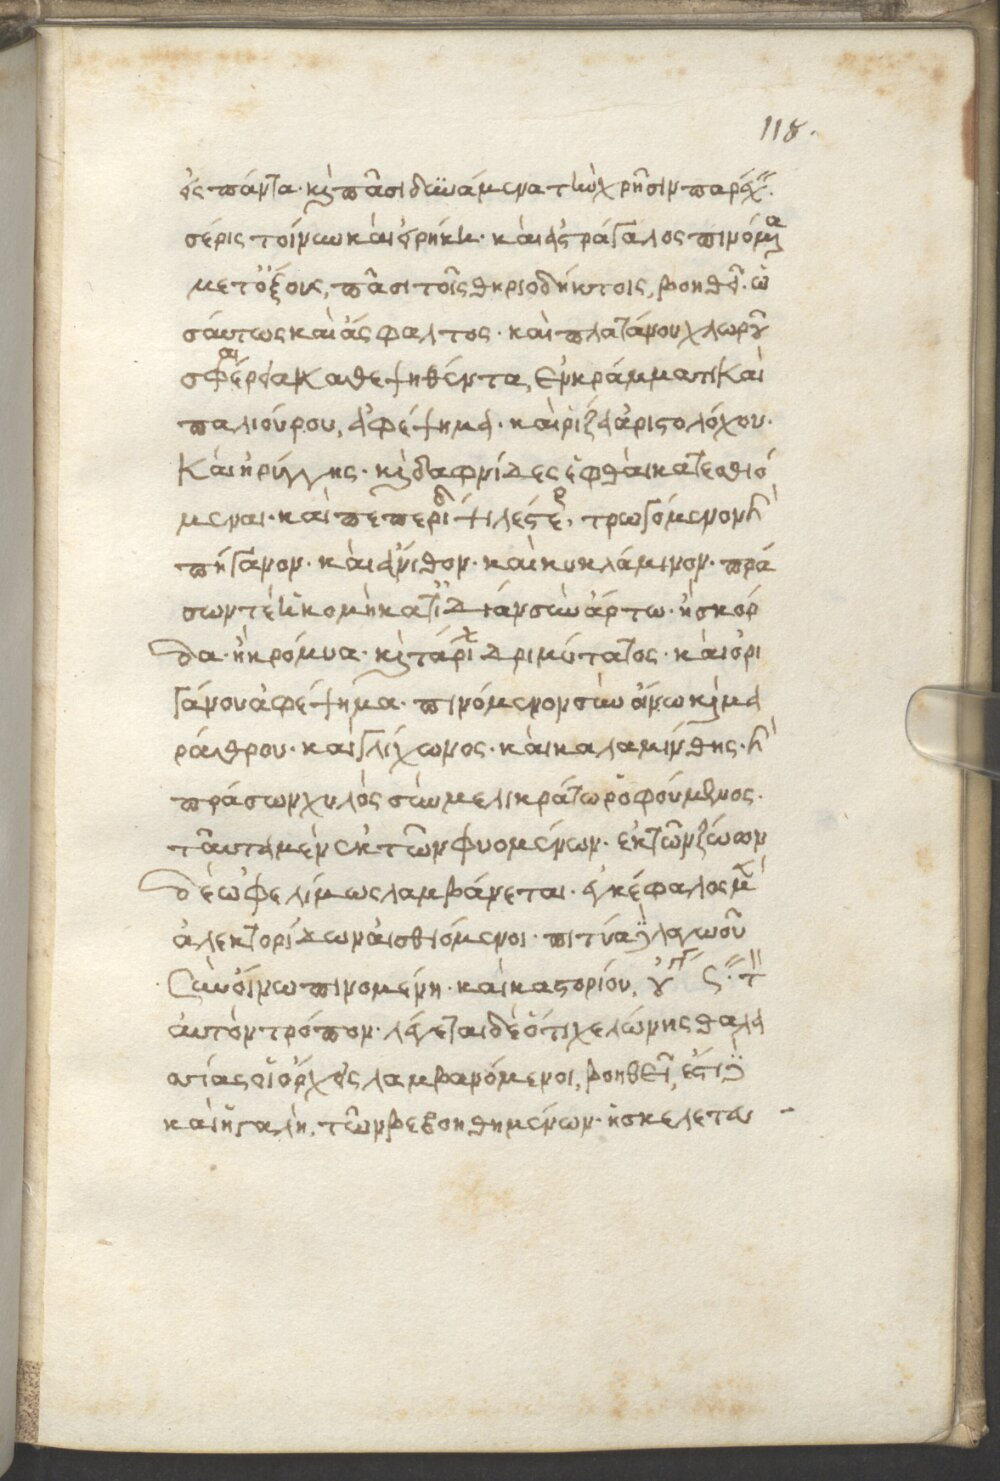 118.
ὡς πάντα· κὶ πᾶσι δυνάμενα τὴν χρῆσιν παρέχ
σέρις τοίνυν καὶ ἐρήκη· καὶ ἀστράγαλος πινόμ
μετ ὄξους, πᾶσι τοῖς θηριοδήκτοις, βοηθεῖ. ὡ
σάυτως καὶ ἄσφαλτος· καὶ πλατάνου χλωρ
σφαίρια καθεψηθέντα, ἐν κράμματι καὶ
παλιούρου, ἀφέψημα· καὶ ρίζα ἀριστολόχου·
καὶ κηρίλλης· κὶ δαφνίδες ἐφθαὶ κατεσθιό
μεναι· καὶ πεπερι τρωγόμενον ἢ
πήγανον· καὶ ἄνιθον· καὶ κυκλάμινον· πρά
σων τὲ ἡ κομὴ κατ ἰδίαν σὺν ἄρτω· ἢ σκόρ
δα· ἢ κρόμυα· κὶ τάριχ δριμύτατος· καὶ ὀρι
γάνου ἀφέψημα· πινόμενον σὺν οἴνω κὶ μα
ράθρου· καὶ γλίχωνος· καὶ καλαμίνθης· ἢ
πράσων χυλὸς σὺν μελικράτω ῥοφούμενος·
ταῦτα μὲν ἐκ τῶν φυομένων· ἐκ τῶν ζώων
δὲ ὠφελίμως λαμβάνεται· ἐγκέφαλος μ
ἀλεκτορίδων ἀισθιόμενοι· πιτύα λαγωοῦ
σὺν οἴνω πινομένη· καὶ καστορίου, τ
αυτὸν τρόπον· λέγεται δὲ ὅτι χελώνης θαλα
σσίας οἱ ὄρχεις λαμβανόμενοι, βοηθεῖ,
καὶ ἡ γαλὴ, τῶν βεβοηθημένων· ἡ σκελετευ